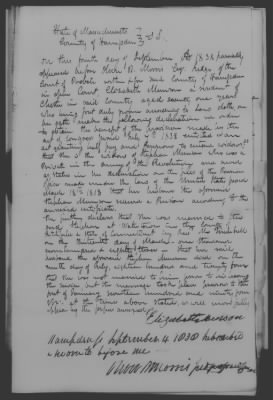 State of Massachusetts
County of Hampden } S.S.
On this fourth day of September AD 1838 personally
appeared before Oliver B. Morris Esq Judge of the
Court of Probate within and for said County of Hampden
in open Court Elizabeth Munson a resident of
in said County aged seventy one years
who being first duly sworn according to law doth on
her oath make the following declaration in order
to obtain the benefit of the provision made in the
act of Congress passed July 7 1838 entitled "an
act granting half pay and pensions to certain widows"
that she is the widow of Stephen Munson who was a
Private in the army of the Revolution and served
as states in his declaration on the files of the Pension
made under the law of the United States passed
March 18 1818 that her husband the aforesaid
Stephen Munson received a Pension according to the
She further declares that she was married to the
said Stephen at Watertown in the County of
Litchfield & State of Connecticut by
on the thirteenth day of one thousand
seven hundred & eighty that her said
husband the aforesaid Stephen Munson died on the
ninth day of July, eighteen hundred and twenty four
that she was not married to him prior to his leaving
the service but the marriage took place previous to the
first of January seventeen hundred and ninety four
viz. at the time above stated,
Elizabeth Munson
Hampden ss September 4 1838 subscribed
& sworn to before me
Oliver B Morris Judge of Probate